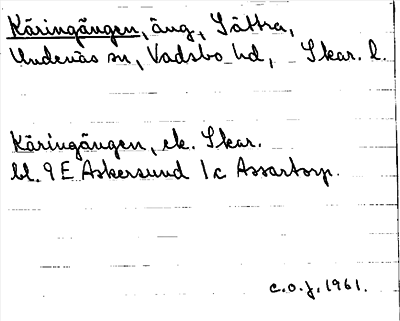 Käringängen, äng, Sättra,
Undenäs sn, Vadsbo hd, Skar. l.
Käringängen, ek. Skar.
bl. 9 E Askersund 1 c Assartorp.
c.o.j. 1961.